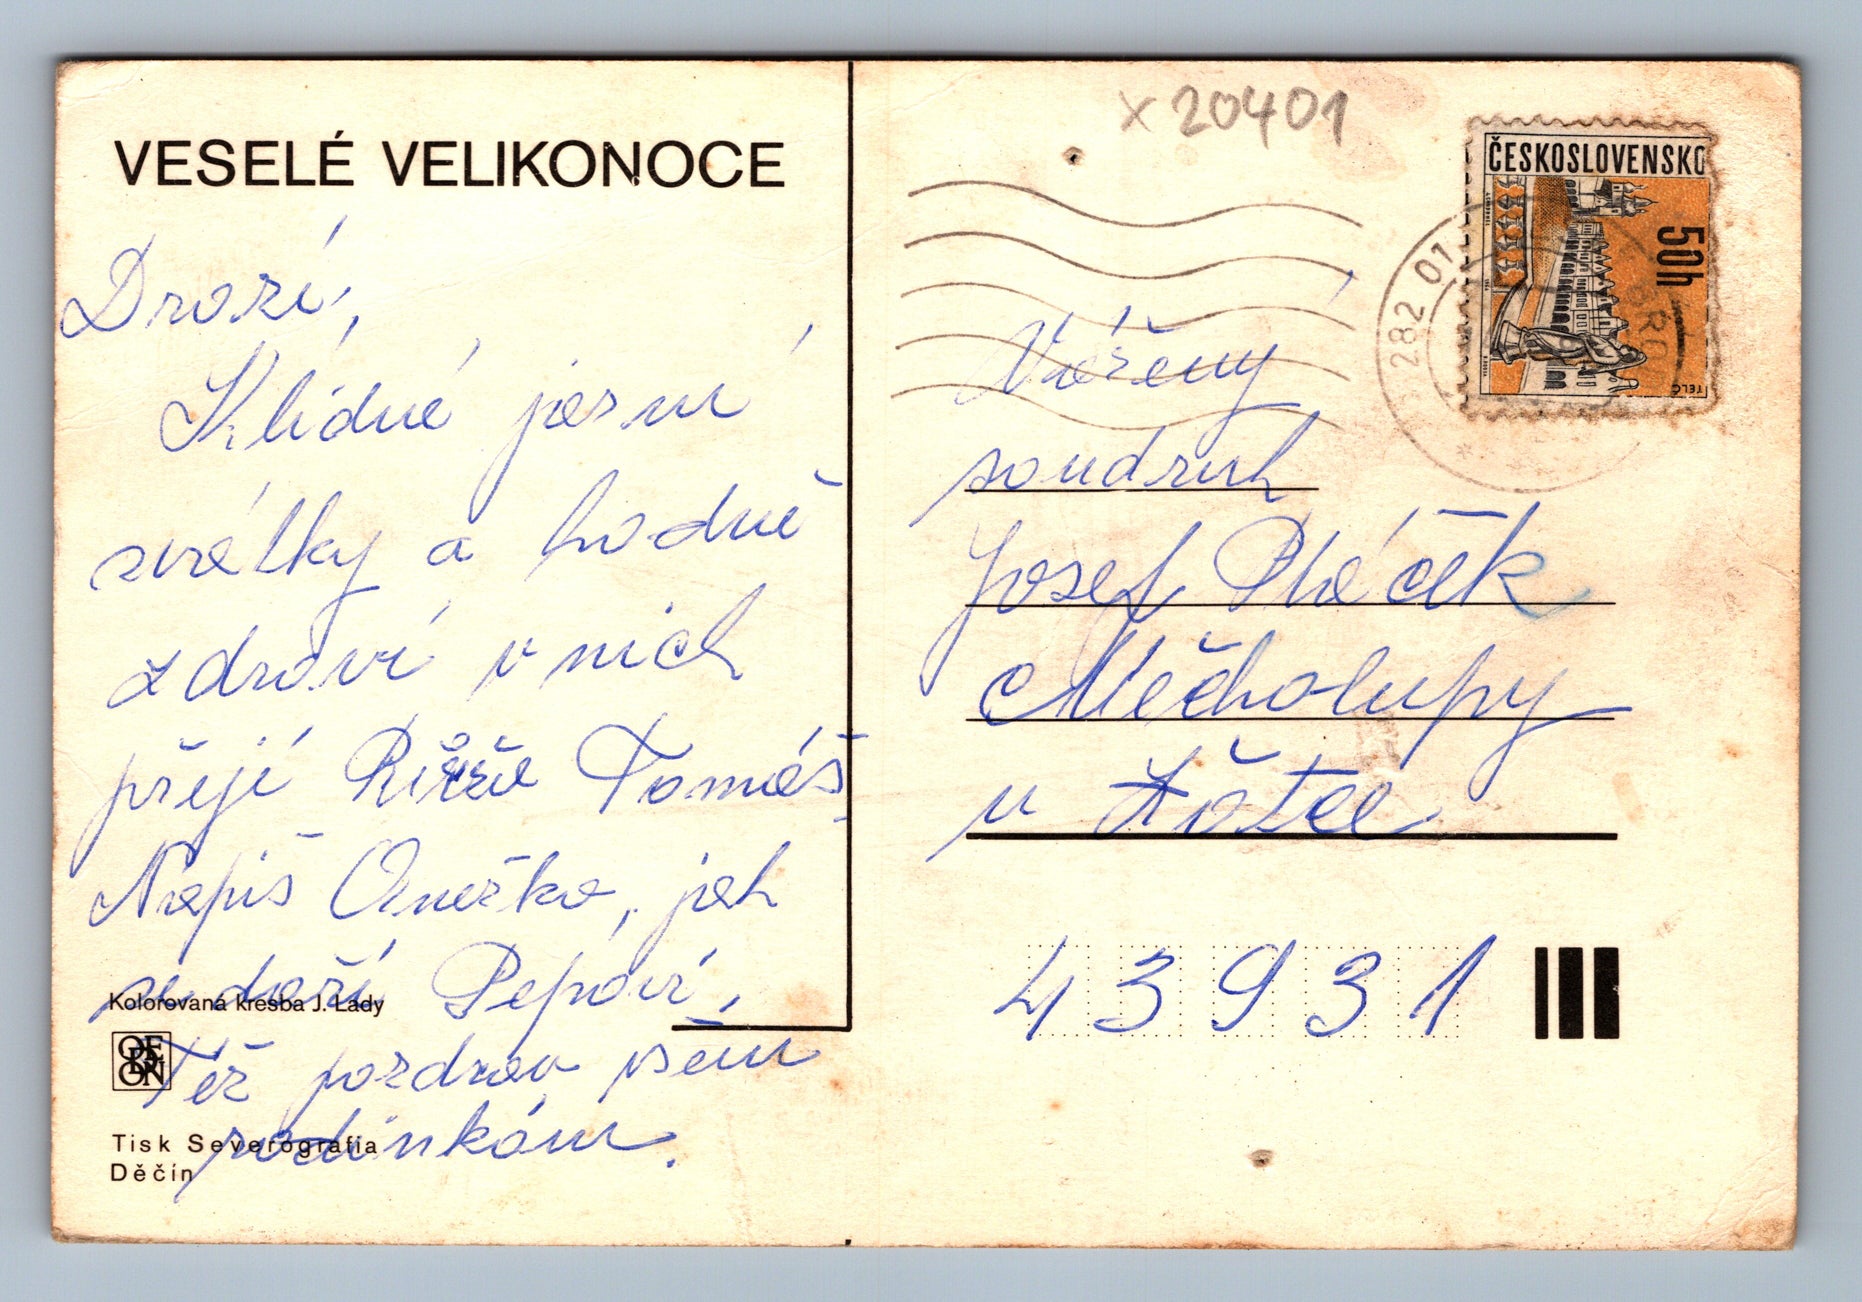 VESELÉ VELIKONOCE
Drazí,
Klidné jarní
svátky a hodně
zdraví v nich
přejí Růžа Tomáš
Napiš Anežko, jak
se daří Pepovi,
Též pozdrav všem
rodinkám.
Kolorovaná kresba J. Lady
ODEON
Tisk Severografia
Děčín
x 20401
ČESKOSLOVENSKO
50h
TELČ
282 01
Vážený
soudruh
Josef
Měcholupy
u Žatce
43931